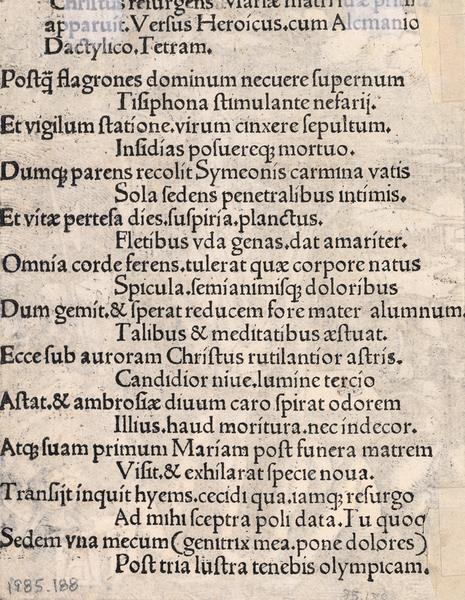 Christus resurgens Mariæ matri suæ primū
apparuit. Versus Heroicus.cum Alcmanio
Dactylico.Tetram.
Postq̃ flagrones dominum necuere ſupernum
Tiſiphona ſtimulante nefarij.
Et vigilum ſtatione.virum cinxere ſepultum.
Inſidias poſuereq; mortuo.
Dumq; parens recolit Symeonis carmina vatis
Sola ſedens penetralibus intimis.
Et vitæ perteſa dies.ſuſpiria.planctus.
Fletibus vda genas.dat amariter.
Omnia corde ferens.tulerat quæ corpore natus
Spicula.ſemianimiſq; doloribus
Dum gemit.& ſperat reducem fore mater alumnum.
Talibus & meditatibus æſtuat.
Ecce ſub auroram Chriſtus rutilantior aſtris.
Candidior niue.lumine tercio
Aſtat.& ambroſiæ diuum caro ſpirat odorem
Illius.haud moritura.nec indecor.
Atq; ſuam primum Mariam poſt funera matrem
Viſit.& exhilarat ſpecie noua.
Tranſijt inquit hyems.cecidi qua.iamq; reſurgo
Ad mihi ſceptra poli data.Tu quoq
Sedem vna mecum (genitrix mea.pone dolores)
Poſt tria luſtra tenebis olympicam.
1985.188